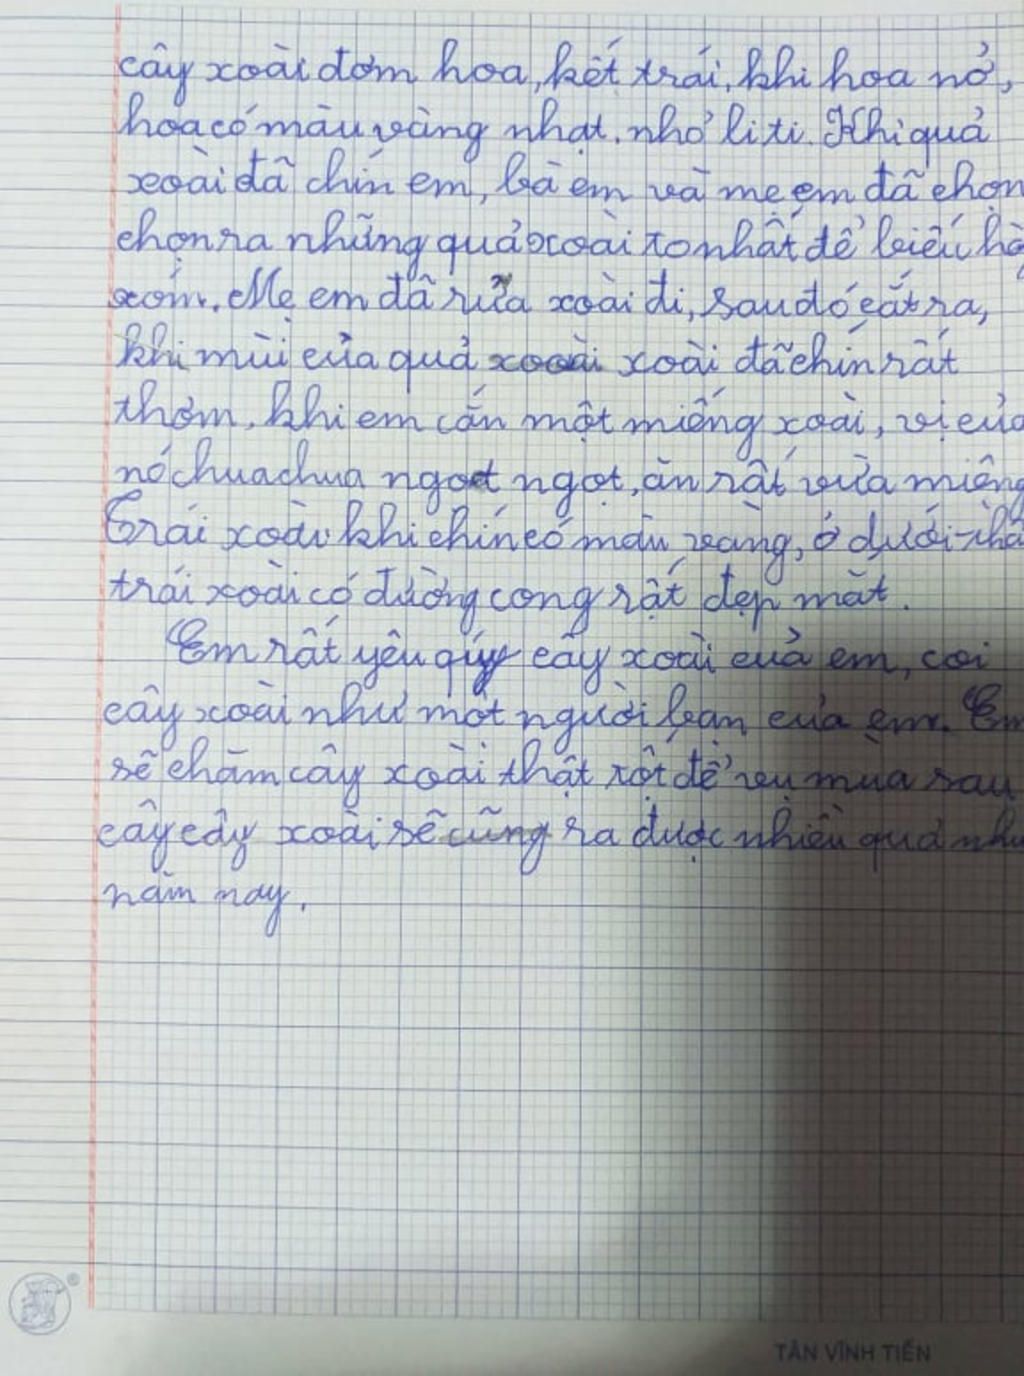 cây xoài đơm hoa, kết trái, khi hoa nở,
hoa có màu vàng nhạt, nhỏ li ti. Khi quả
xoài đã chín em, bà em và mẹ em đã chọn
chọn ra những quả xoài to nhất để biếu hà
xóm. Mẹ em đã rửa xoài đi, sau đó cắt ra,
khi mùi của quả xoài xoài đã chín rất
thơm, khi em cắn một miếng xoài, vị của
nó chua chua ngọt ngọt, ăn rất vừa miệng
Trái xoài khi chín có màu vàng, ở dưới
trái xoài có đường cong rất đẹp mắt.
Em rất yêu quý cây xoài của em, coi
cây xoài như một người bạn của em. Em
sẽ chăm cây xoài thật tốt để vụ mùa sau
cây cây xoài sẽ cũng ra được nhiều quả như
năm nay.
TÂN VĨNH TIẾN